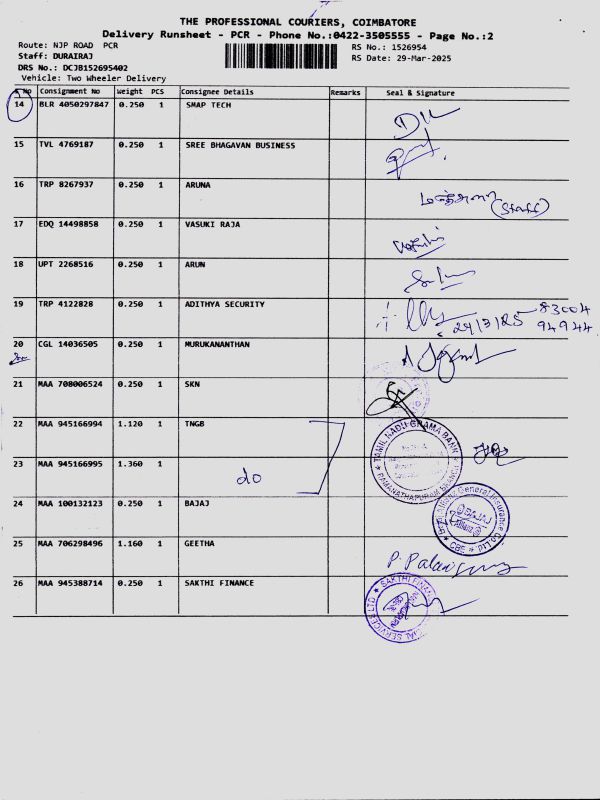 THE PROFESSIONAL COURIERS, COIMBATORE
Delivery Runsheet - PCR - Phone No.:0422-3505555 - Page No.:2
Route: NJP ROAD PCR
RS No.: 1526954
Staff: DURAIRAJ
RS Date: 29-Mar-2025
DRS No.: DCJB152695402
Vehicle: Two Wheeler Delivery
S No Consignment No Weight PCS Consignee Details Remarks Seal & Signature
14 BLR 4050297847 0.250 1 SMAP TECH
15 TVL 4769187 0.250 1 SREE BHAGAVAN BUSINESS
16 TRP 8267937 0.250 1 ARUNA
(Staff)
17 EDQ 14498858 0.250 1 VASUKI RAJA
18 UPT 2268516 0.250 1 ARUN
19 TRP 4122828 0.250 1 ADITHYA SECURITY
29/3/25 83004
94944
20 CGL 14036505 0.250 1 MURUKANANTHAN
21 MAA 708006524 0.250 1 SKN
22 MAA 945166994 1.120 1 TNGB
TAMIL NADU GRAMA BANK
RAMANATHAPURAM BRANCH
23 MAA 945166995 1.360 1 do
24 MAA 100132123 0.250 1 BAJAJ
Bajaj Allianz General Insurance Co. Ltd
BAJAJ
Allianz
CBE
25 MAA 706298496 1.160 1 GEETHA
26 MAA 945388714 0.250 1 SAKTHI FINANCE